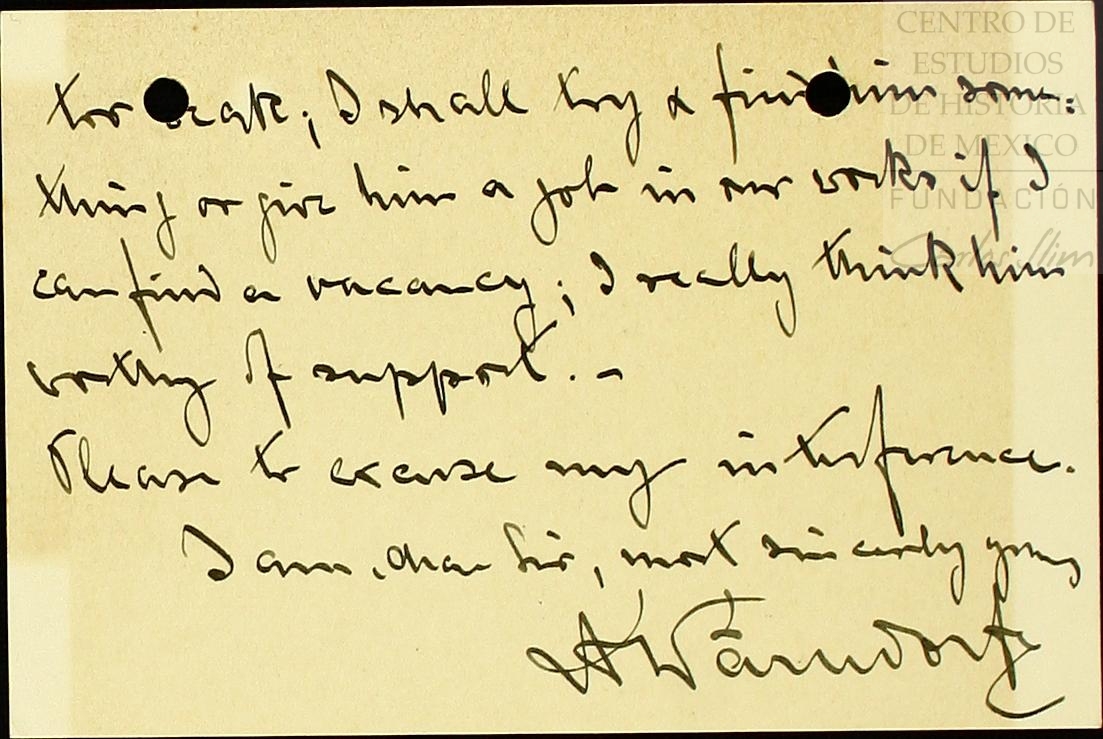 too
I shall try & find him some:
thing or give him a job in our works if I
can find a vacancy; I really think him
worthy of support. –
Please to excuse my interference.
I am, dear Sir, most sincerely yours
CENTRO DE
ESTUDIOS
DE HISTORIA
DE MEXICO
FUNDACIÓN
Carlos Slim